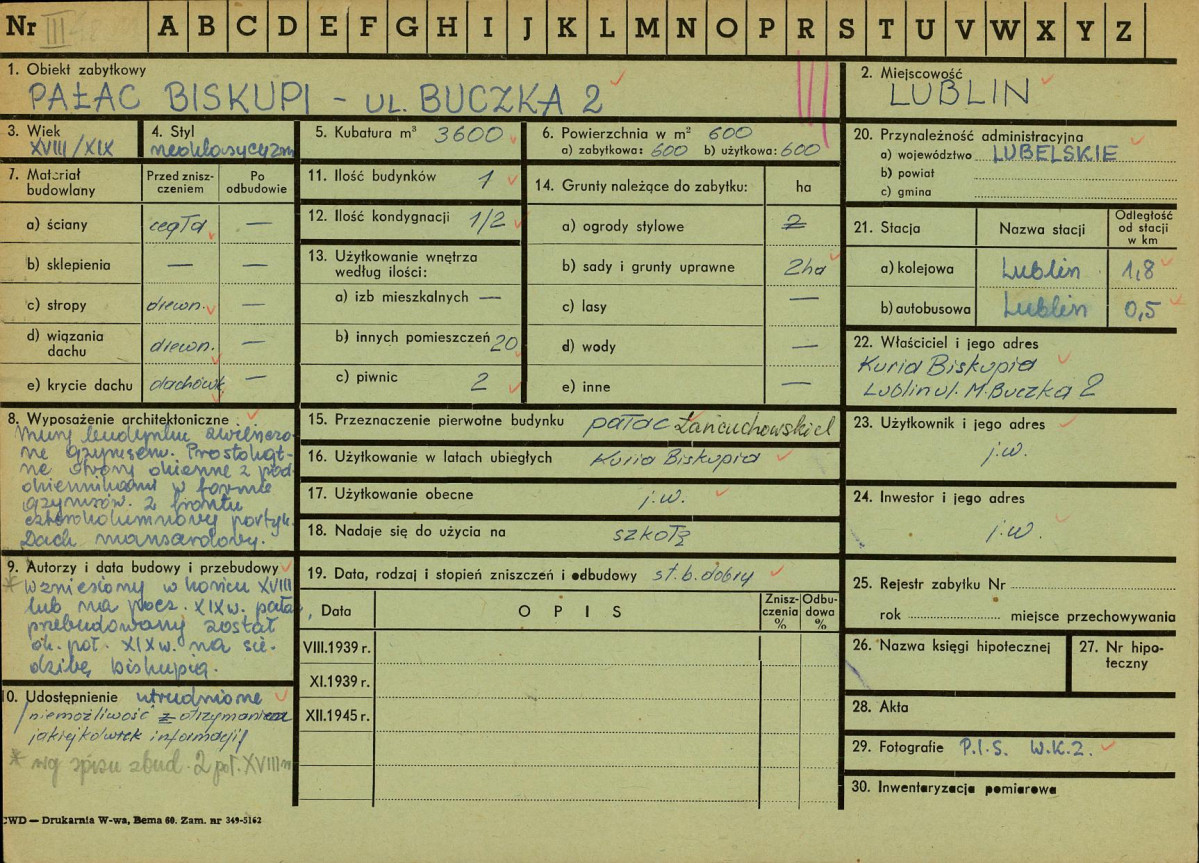 Nr III A B C D E F G H I J K L M N O P R S T U V W X Y Z
1. Obiekt zabytkowy
PAŁAC BISKUPI - UL. BUCZKA 2
2. Miejscowość
LUBLIN
3. Wiek
XVIII/XIX
4. Styl
neoklasycyzm
5. Kubatura m³ 3600
6. Powierzchnia w m² 600
a) zabytkowa: 600 b) użytkowa: 600
20. Przynależność administracyjna
a) województwo LUBELSKIE
b) powiat
c) gmina
7. Materiał budowlany
Przed zniszczeniem
Po odbudowie
a) ściany cegła —
b) sklepienia — —
c) stropy drewn. —
d) wiązania dachu drewn. —
e) krycie dachu dachówk —
11. Ilość budynków 1
12. Ilość kondygnacji 1/2
13. Użytkowanie wnętrza
według ilości:
a) izb mieszkalnych —
b) innych pomieszczeń 20
c) piwnic 2
14. Grunty należące do zabytku: ha
a) ogrody stylowe 2
b) sady i grunty uprawne 2ha
c) lasy —
d) wody —
e) inne —
21. Stacja Nazwa stacji Odległość od stacji w km
a) kolejowa Lublin 1,8
b) autobusowa Lublin 0,5
22. Właściciel i jego adres
Kuria Biskupia
Lublin ul. M. Buczka 2
8. Wyposażenie architektoniczne
Mury budynku zwieńczo-
ne gzymsem. Prostokąt-
ne otwory okienne z pod-
okiennikami w formie
gzymsów. Z frontu
czterokolumnowy portyk.
Dach mansardowy.
15. Przeznaczenie pierwotne budynku pałac Łańcuchowskich
16. Użytkowanie w latach ubiegłych Kuria Biskupia
17. Użytkowanie obecne j.w.
18. Nadaje się do użycia na szkołę
23. Użytkownik i jego adres
j.w.
24. Inwestor i jego adres
j.w.
9. Autorzy i data budowy i przebudowy
* Wzniesiony w końcu XVIII
lub na pocz. XIX w. pałac
przebudowany został
ok. poł. XIX w. na sie-
dzibę biskupią.
19. Data, rodzaj i stopień zniszczeń i odbudowy st. b. dobry
Data O P I S Zniszczenia % Odbudowa %
VIII.1939 r.
XI.1939 r.
XII.1945 r.
25. Rejestr zabytku Nr
rok miejsce przechowywania
26. Nazwa księgi hipotecznej
27. Nr hipoteczny
28. Akta
29. Fotografie P.I.S. W.K.Z.
30. Inwentaryzacja pomiarowa
10. Udostępnienie utrudnione
niemożliwość otrzymania
jakiejkolwiek informacji
* wg spisu zbud. 2 poł. XVIII w
CWD — Drukarnia W-wa, Bema 60. Zam. nr 349-5162